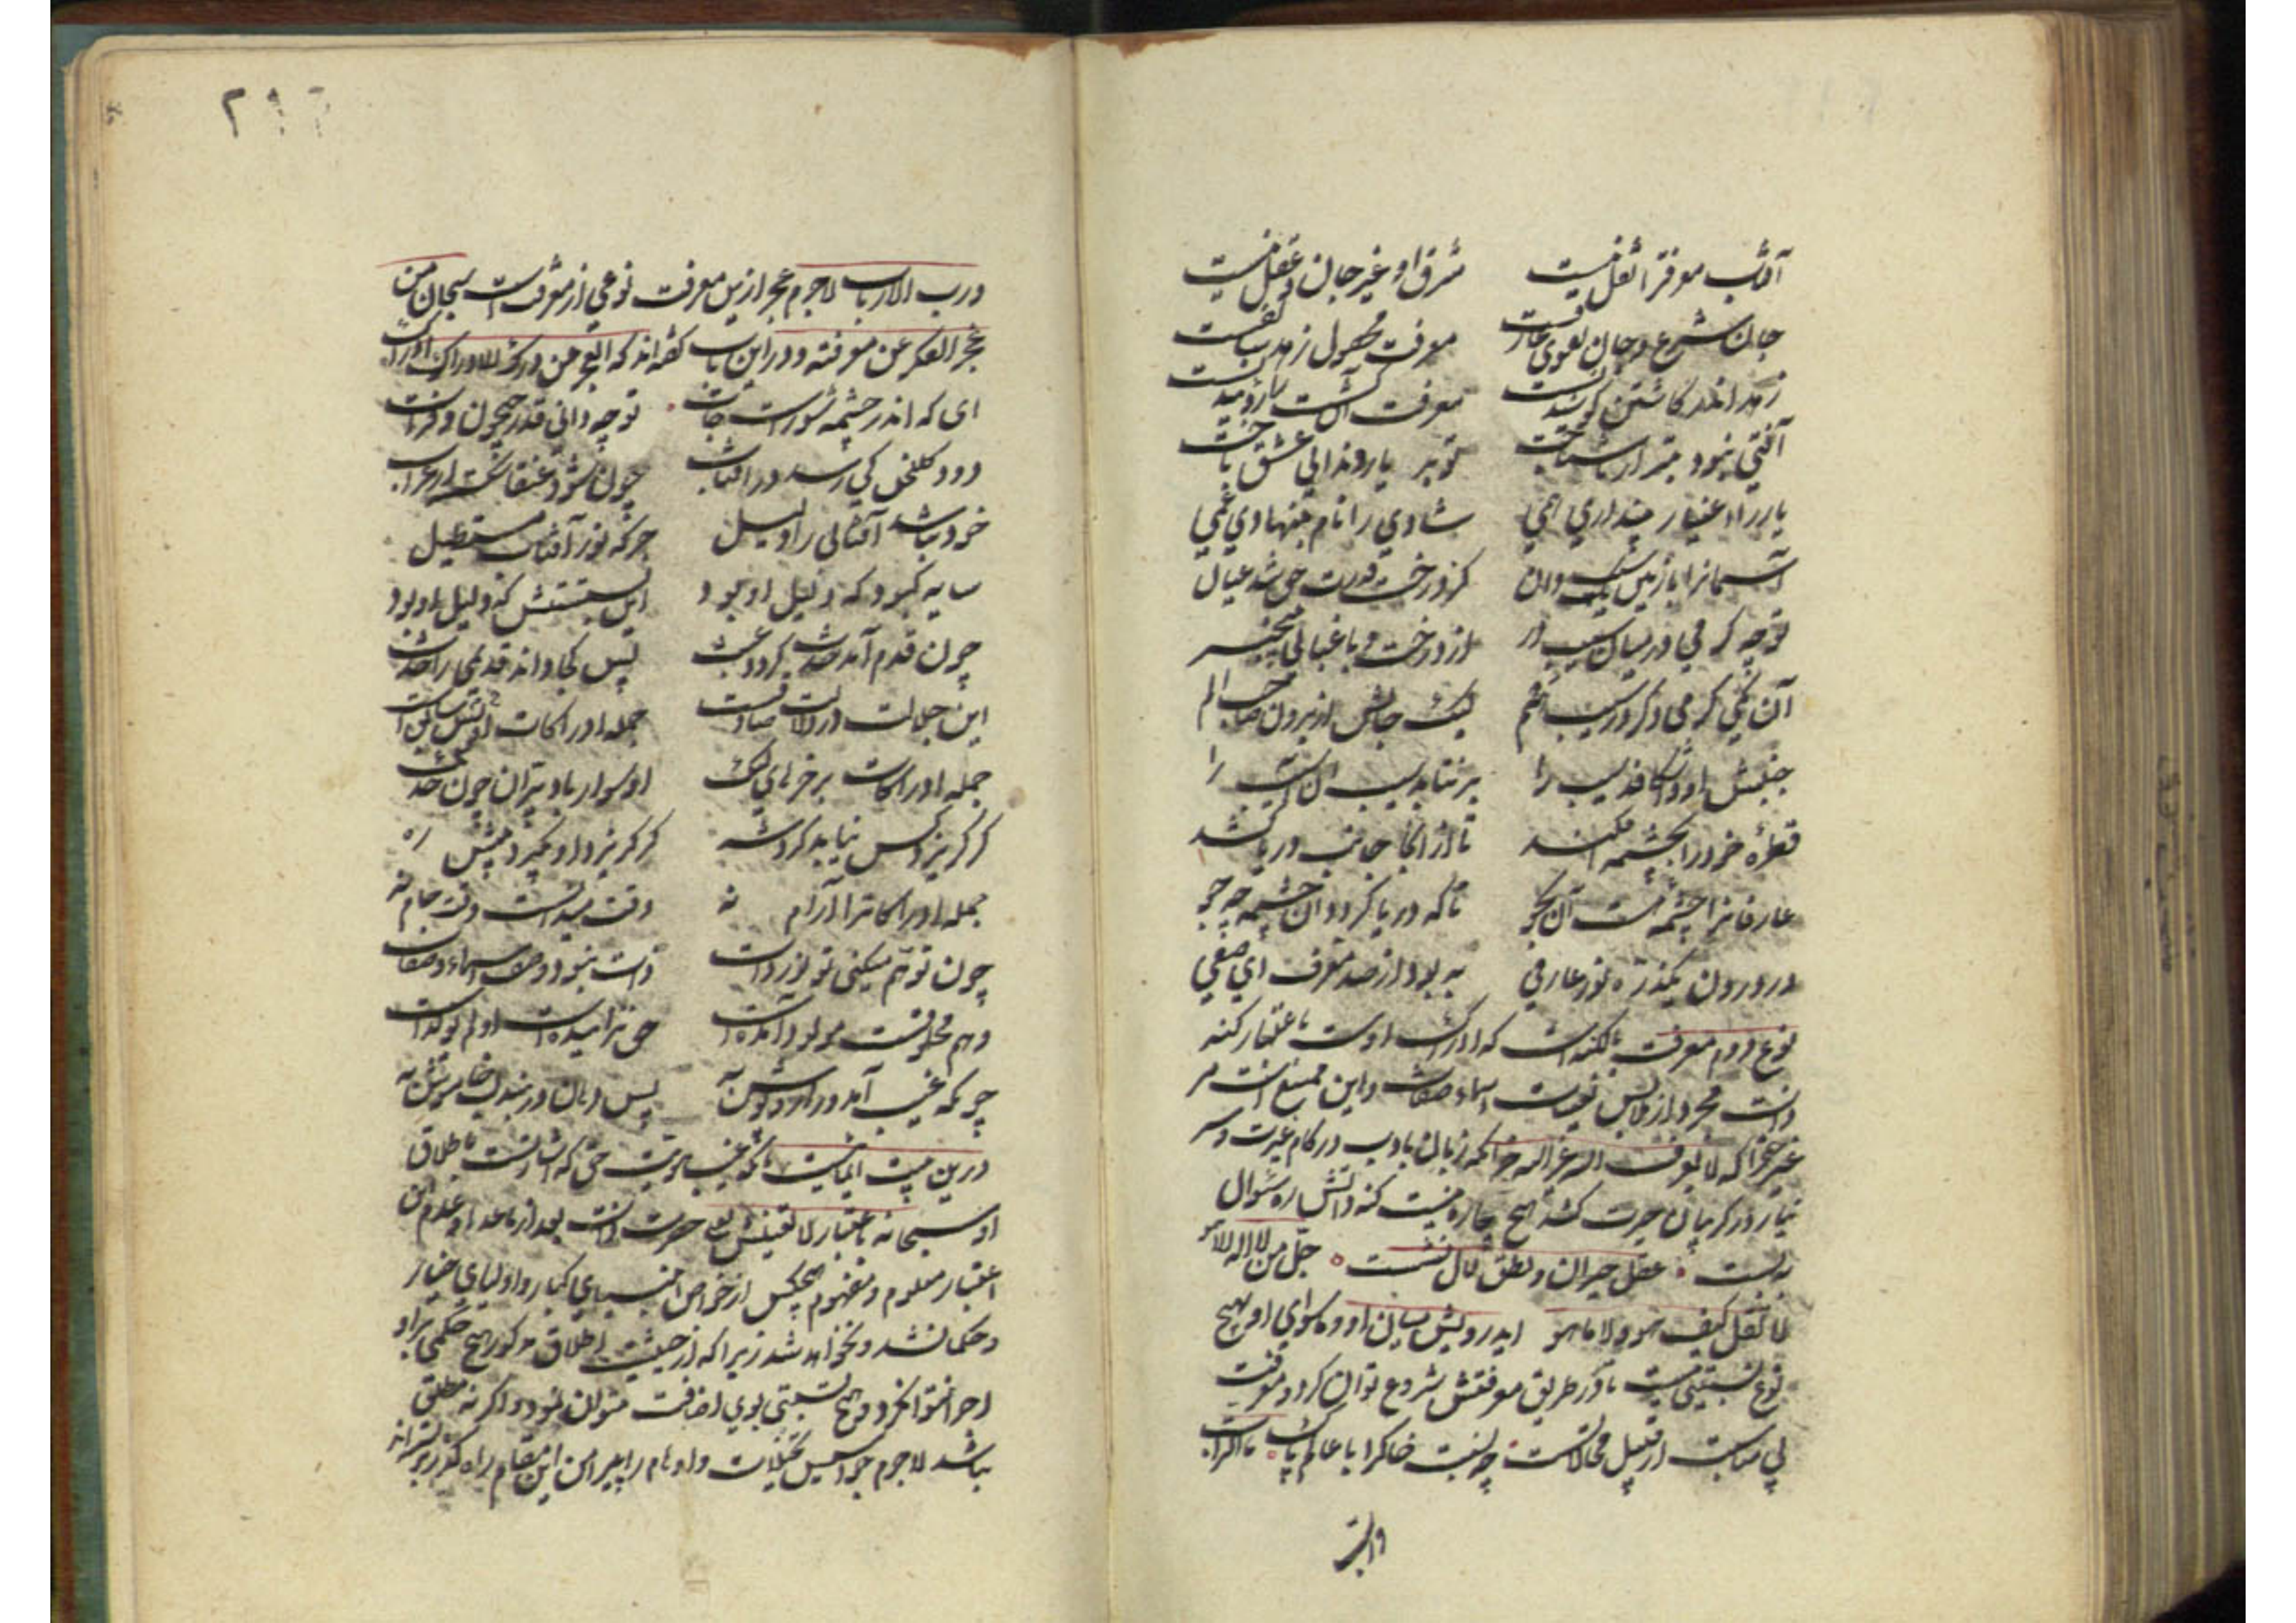 آفتاب معرفت را نقل نیست شرق او غیر جان و عقل نیست
جان شرع و جان تقوی عارفست معرفت محصول زهد سالفست
زهد اندر کاشتن کوشیدنست معرفت آن کشت را روییدنست
آفتی نبود بتر از ناشناخت تو بر یار و ندانی عشق باخت
یار را اغیار پنداری همی شادی را نام بنهادی غمی
آسمانرا با زمین یک سیب دان کز درخت قدرت حق شد عیان
تو چه کرمی در میان سیب در از درخت و باغبانی بیخبر
آن یکی کرمی دگر در سیب هم لیک جانش از برون صاحب علم
جنبش او واشکافد سیب را بر نتابد سیب آن آسیب را
قطرهٔ خود را بچشمه افکند تا از انجا جانب دریا کشد
عارفانرا چشمه است آن بجو تا که دریا گردد آن چشمه چو جو
در درون یکذره نور عارفی به بود از صد معرف ای صفی
نوع دوم معرفت بکنه است که ادراک اوست باعتبار کنه
ذات مجرد از ملابس تعینات اسماء و صفات و این ممتنع است مر
غیر حق را که لا یعرف الله غیر الله جز آنکه زبان بادب در کام عبرت و سر
نیاز در گریبان حیرت کشد هیچ چاره نیست کنه ذاتش ره سؤال
ببست عقل حیران و نطق لال نشست جل من لا اله الا هو
لا تقل کیف هو ولا ما هو ایدرویش میان او و ماسوای او بهیچ
نوع نسبتی نیست تا در طریق معرفتش شروع توان کرد و معرفت
بی مناسبت از قبیل محالاتست چه نسبت خاکرا با عالم پاک ما للتراب
و رب الارباب لاجرم عجز ازین معرفت نوعی از معرفت است سبحان من
عجز الفکر عن معرفته و درین باب گفته اند که العجز عن درک الادراک ادراک
ای که اندر چشمه شورست جات تو چه دانی قدر جیحون و فرات
دود گلخن کی رسد در آفتاب چون شود عنقا شکسته از غراب
خود نباشد آفتابی را دلیل جز که نور آفتاب مستطیل
سایه کبود که دلیل او بود این بستش که ذلیل او بود
چون قدم آمد حدث گردد عبث پس کجا داند قدیمی را حدث
این جلالت در دلالت صادقست جمله ادراکات پس او سابقست
جمله ادراکات بر خرهای لنگ او سوار باد پران چون خدنگ
گر گریزد کس نیابد گرد شه گر گریزد او بگیرد پیش راه
جمله ادراکاترا آرام نه وقت میدانست وقت جام نه
چون توهم میکنی تو نور ذات ذات نبود وهم اسماء و صفات
وهم مخلوقست مولود آمدست حق نزاییدست او لم یولدست
چونکه غیب آمد ورا روپوش به پس دهان دربند لب خاموش به
درین بیت ایمائیست بآنکه غیب هویت حق که اشارتست باطلاق
او سبحانه باعتبار لا تعینش یعنی حضرت ذات بعد از ما عداه و عدم این
اعتبار معلوم و مفهوم هیچکس از خواص انبیای کبار و اولیای اخیار
و حکما نشد و نخواهد شد زیرا که از حیثیت اطلاق مذکور هیچ حکمی بر او
اجرا نتوان کرد و هیچ نسبتی بوی اضافت نتوان نمود و اگر نه مطلق
نباشد لاجرم جواسیس تخیلات و اوهام را پیرامن این مقام راه گذر بربسته اند